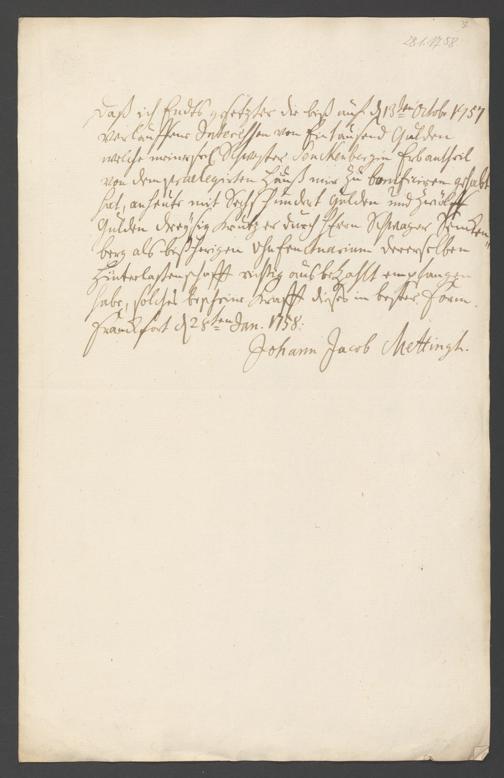 28.1.1758
Daß ich Endts gesetzter die biß auf d 13ten Octobr 1757
verlauffene Interessen von Ein tausend Gulden
welche meine seel. Schwester Senckenbergin Erbantheil
von dem praelegirten Hauß mir zu bonificiren gehabt
hat, anheute mit Sechs hundert Gulden und zwölff
Gulden dreysig Kreutzer durch Herrn Schwager Sencken¬
berg als bißherigen Usufructuarium dererselben
Hinterlassenschafft richtig ausbezahlt empfangen
habe, solches bescheine Krafft dieses in bester Form.
Franckfort d 28ten Jan. 1758.
Johann Jacob Mettingh.